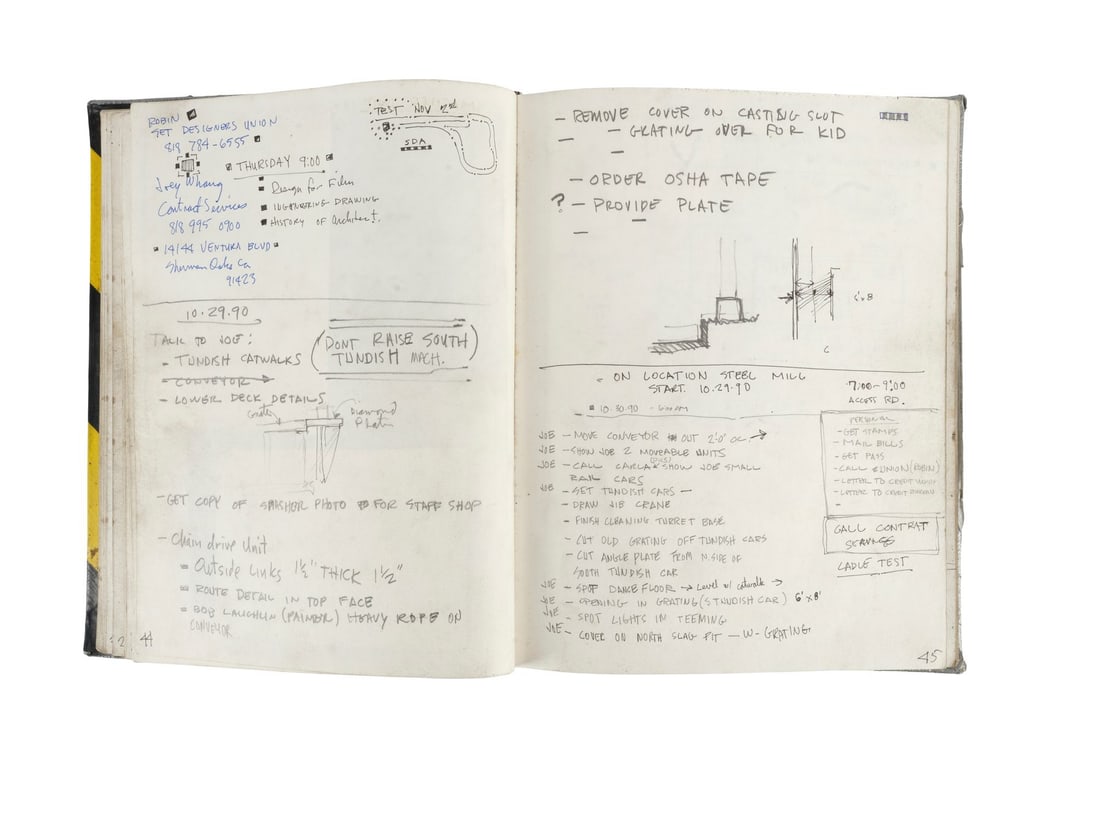 ROBIN
SET DESIGNERS UNION
818 784-6555
THURSDAY 9:00
Joey
Contract Services
818 995 0900
14144 VENTURA BLVD
Sherman Oaks Ca
91423
Design for Film
ENGENERING DRAWING
HISTORY of Architect.
TEST NOV 2nd
SDA
10.29.90
TALK TO JOE:
- TUNDISH CATWALKS
- CONVEYOR
- LOWER DECK DETAILS
(DONT RAISE SOUTH
TUNDISH MACH.)
Diamond
Plate
- GET COPY OF SMASHER PHOTO FOR STAFF SHOP
- Chain drive Unit
Outside Links 1½" THICK 1½"
ROUTE DETAIL IN TOP FACE
BOB LAUGHLIN (PAINTER) HEAVY ROPE ON
CONVEYOR
44
- REMOVE COVER ON CASTING SLOT
- GRATING OVER FOR KID
- ORDER OSHA TAPE
? - PROVIDE PLATE
ON LOCATION STEEL MILL
START. 10.29.90
7:00-9:00
ACCESS RD.
10.30.90 - 6:00am
JOE - MOVE CONVEYOR OUT 2'0" OC.
JOE - SHOW JOE 2 MOVEABLE UNITS
JOE - CALL CARLA SHOW JOE SMALL
RAIL CARS
JOE - SET TUNDISH CARS -
- DRAW JIB CRANE
- FINISH CLEANING TURRET BASE
- CUT OLD GRATING OFF TUNDISH CARS
- CUT ANGLE PLATE FROM N. SIDE OF
SOUTH TUNDISH CAR
JOE - SPOT DANCE FLOOR → Level w/ catwalk →
JOE - OPENING IN GRATING (S TNUDISH CAR) 6' x 8'
JOE - SPOT LIGHTS IN TEEMING
JOE - COVER ON NORTH SLAG PIT - W- GRATING
PERSONAL
- GET STAMPS
- MAIL BILLS
- GET PASS
- CALL UNION (ROBIN)
- LETTER TO CREDIT
- LETTER TO CREDIT BUREAU
CALL CONTRAT
SERVICES
LADLE TEST
45